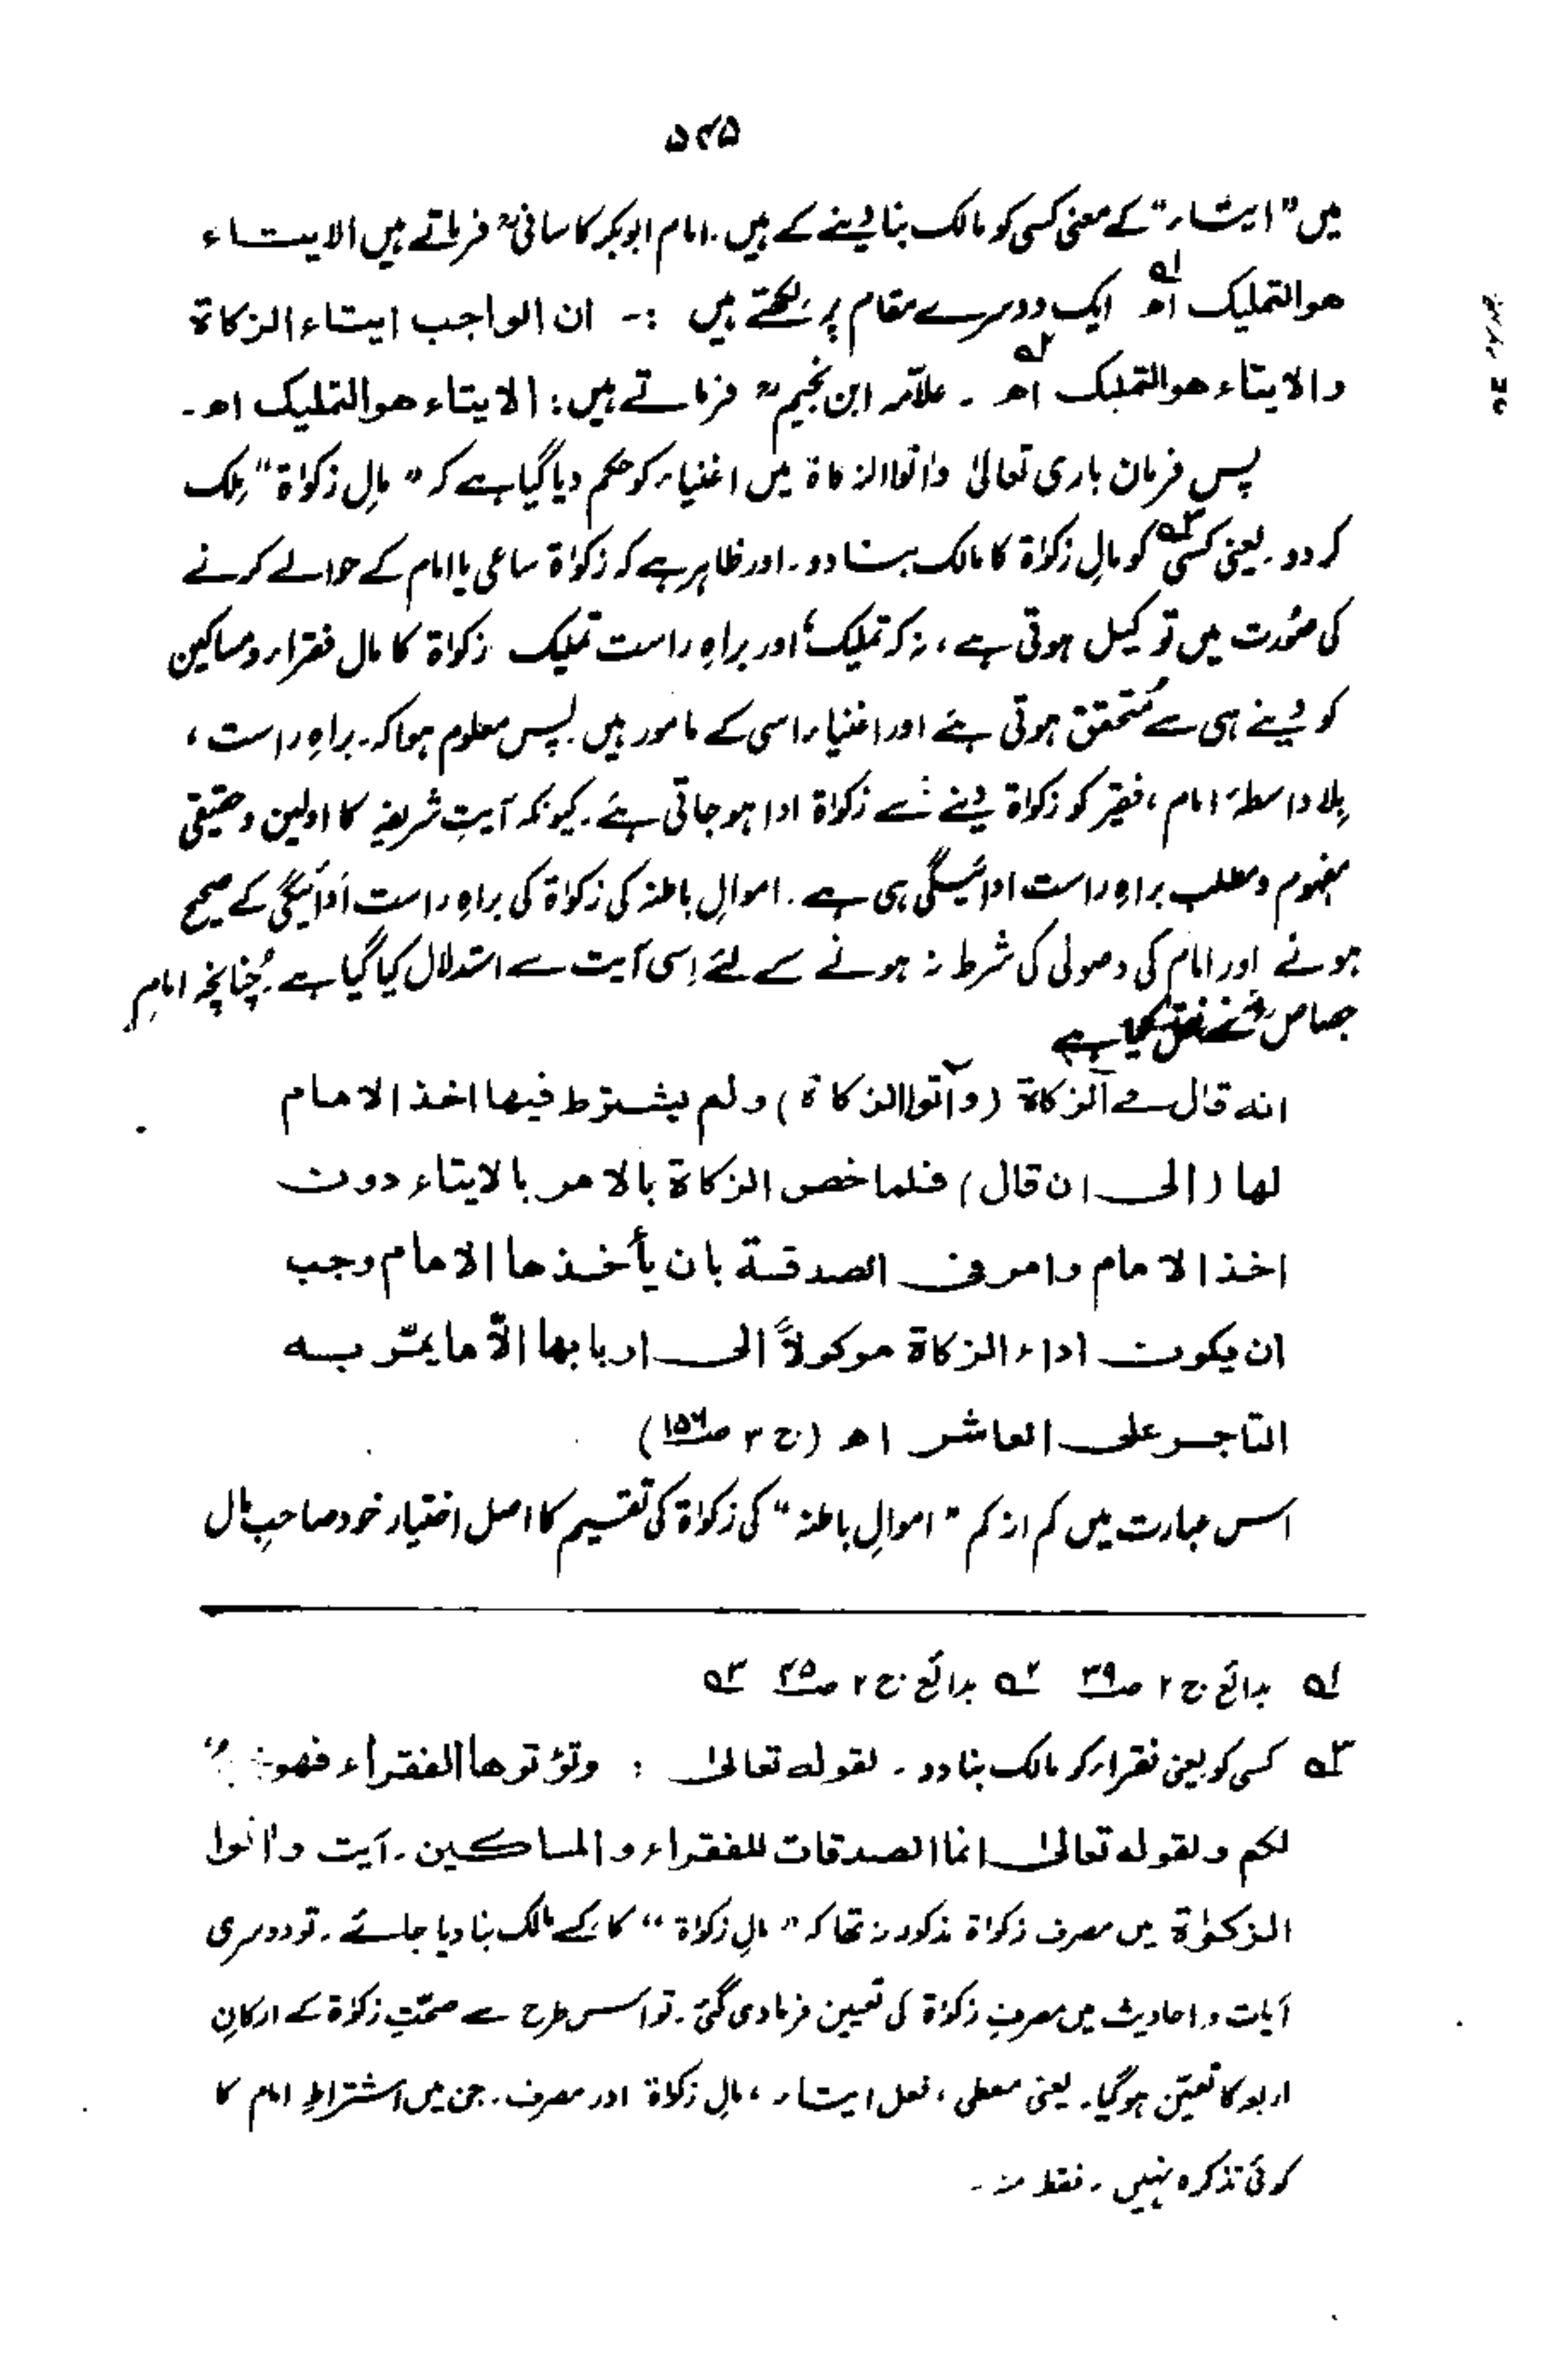 ۵۴۵
میں "ایتاء" کے معنی کسی کو مالک بنا دینے کے ہیں۔ امام ابوبکر کاسانیؒ فرماتے ہیں الایتاء
هوالتملیک اھ ۱؎ ایک دوسرے مقام پر لکھتے ہیں :- ان الواجب ایتاء الزکاة
والایتاء هوالتملیک اھ ۲؎ ۔ علامہ ابن نجیمؒ فرماتے ہیں: الایتاء هوالتملیک اھ۔
پس فرمان باری تعالیٰ واٰتوا الزکاة میں اغنیاء کو حکم دیا گیا ہے کہ "مالِ زکوٰة" مِلک
کر دو۔ یعنی کسی ۳؎ کو مالِ زکوٰة کا مالک بنا دو۔ اور ظاہر ہے کہ زکوٰة ساعی یا امام کے حوالے کرنے
کی صُورت میں توکیل ہوتی ہے، نہ کہ تملیک، اور براہِ راست تملیک زکوٰة کا مال فقراء و مساکین
کو دینے ہی سے مُتحقق ہوتی ہے اور اغنیاء اسی کے مامور ہیں۔ پس معلوم ہوا کہ۔ براہِ راست،
بِلا واسطۂ امام، فقیر کو زکوٰة دینے سے زکوٰة ادا ہو جاتی ہے۔ کیونکہ آیتِ شریفہ کا اولین و حقیقی
مفہوم و مطلب براہِ راست ادائیگی ہی ہے۔ اموالِ باطنہ کی زکوٰة کی براہِ راست ادائیگی کے صحیح
ہونے اور امام کی وصولی کی شرط نہ ہونے کے لئے اِسی آیت سے استدلال کیا گیا ہے۔ چُنانچہ امامِ
جصاصؒ نے نقل کیا ہے
انه قال فی الزکاة (وآتوا الزکاة) ولم یشترط فیها اخذ الامام
لها (الی ان قال) فلما خص الزکاة بالامر بالایتاء دون
اخذ الامام وامر فی الصدقة بان یأخذها الامام وجب
ان یکون اداء الزکاة موکولاً الی اربابها الّا ما یمّر به
التاجر علی العاشر اھ (ج ۳ ص ۱۵۶)
اس عبارت میں کم از کم "اموالِ باطنہ" کی زکوٰة کی تقسیم کا اصل اختیار خود صاحبِ مال
۱؎ بدائع ج ۲ ص ۳۹ ۲؎ بدائع ج ۲ ص ۳۵ ۳؎
۳؎ کسی کو یعنی فقراء کو مالک بنا دو۔ لقوله تعالیٰ : وتؤتوها الفقراء فهو
لکم ولقوله تعالیٰ انما الصدقات للفقراء والمساکین۔ آیت واٰتوا
الزکوٰة میں مصرف زکوٰة مذکور نہ تھا کہ "مالِ زکوٰة" کا کسے مالک بنا دیا جائے۔ تو دوسری
آیات و احادیث میں مصرفِ زکوٰة کی تعیین فرما دی گئی۔ تو اس طرح سے صحّتِ زکوٰة کے ارکانِ
اربعہ کا تعیّن ہو گیا۔ یعنی معطی، فعل ایتاء، مالِ زکوٰة اور مصرف۔ جن میں اشتراطِ امام کا
کوئی تذکرہ نہیں۔ فقط منہ۔